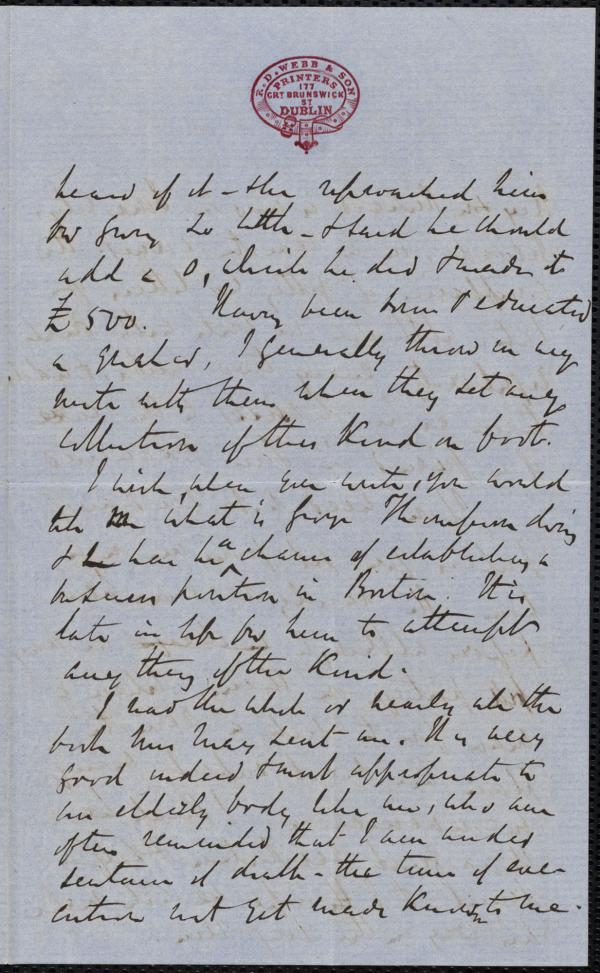 R. D. WEBB & SON
PRINTERS
177
GRT BRUNSWICK
ST
DUBLIN
heard of it – she reproached him
for giving so little – & said he should
add a 0, which he did & made it
£500. Having been born & educated
a Quaker, I generally throw in my
mite with them when they set any
collection of this kind on foot.
I wish, when you write, you would
tell me what is George Thompson doing
& has he a chance of establishing a
business position in Boston. It is
late in life for him to attempt
any thing of the kind.
I read the whole or nearly all the
book Miss May sent me. It is very
good indeed & most appropriate to
an elderly body like me, who am
often reminded that I am under
sentence of death – the time of exe-
cution not yet made known to me.